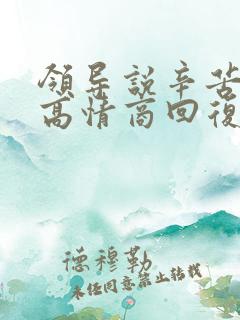 領导説辛苦
高情商回復
德穆勒
未经同意禁止转载